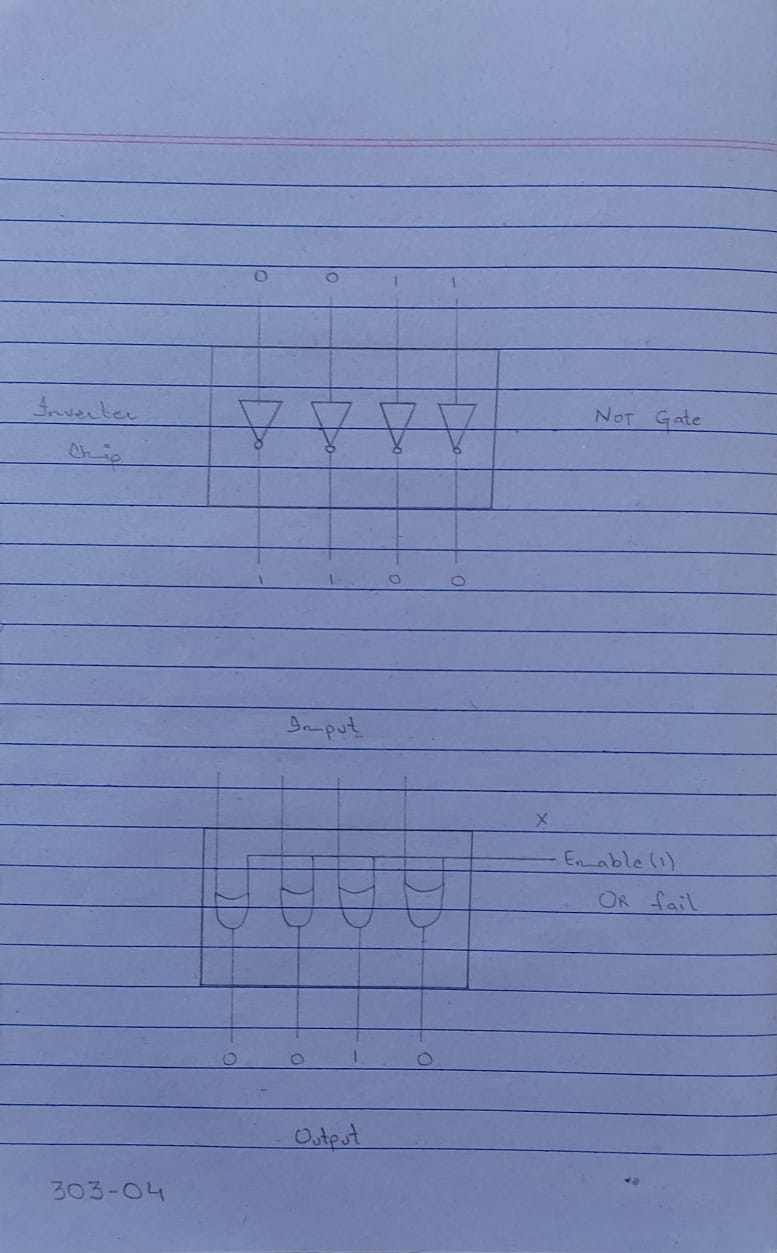 0 0 1 1
Inverter Not Gate
Chip
1 1 0 0
Input
X
Enable (1)
OR fail
0 0 1 0
Output
303-04